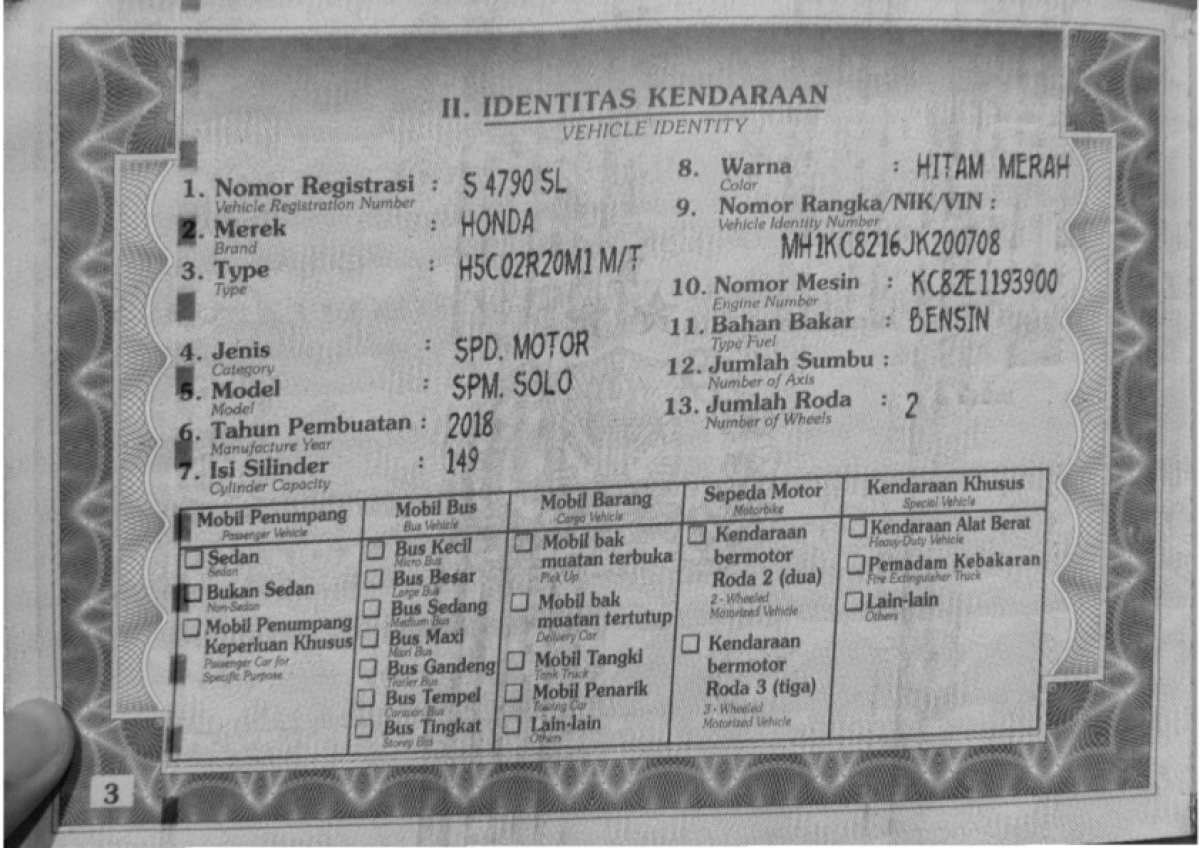 II. IDENTITAS KENDARAAN
VEHICLE IDENTITY
1. Nomor Registrasi : S 4790 SL
Vehicle Registration Number
2. Merek : HONDA
Brand
3. Type : H5C02R20M1 M/T
Type
4. Jenis : SPD. MOTOR
Category
5. Model : SPM. SOLO
Model
6. Tahun Pembuatan : 2018
Manufacture Year
7. Isi Silinder : 149
Cylinder Capacity
8. Warna : HITAM MERAH
Color
9. Nomor Rangka/NIK/VIN :
Vehicle Identity Number
MH1KC8216JK200708
10. Nomor Mesin : KC82E1193900
Engine Number
11. Bahan Bakar : BENSIN
Type Fuel
12. Jumlah Sumbu :
Number of Axis
13. Jumlah Roda : 2
Number of Wheels
Mobil Penumpang
Passenger Vehicle
Sedan
Sedan
Bukan Sedan
Non-Sedan
Mobil Penumpang
Keperluan Khusus
Passenger Car for
Specific Purpose
Mobil Bus
Bus Vehicle
Bus Kecil
Micro Bus
Bus Besar
Large Bus
Bus Sedang
Medium Bus
Bus Maxi
Maxi Bus
Bus Gandeng
Trailer Bus
Bus Tempel
Caravan Bus
Bus Tingkat
Storey Bus
Mobil Barang
Cargo Vehicle
Mobil bak
muatan terbuka
Pick Up
Mobil bak
muatan tertutup
Delivery Car
Mobil Tangki
Tank Truck
Mobil Penarik
Towing Car
Lain-lain
Others
Sepeda Motor
Motorbike
Kendaraan
bermotor
Roda 2 (dua)
2 - Wheeled
Motorized Vehicle
Kendaraan
bermotor
Roda 3 (tiga)
3 - Wheeled
Motorized Vehicle
Kendaraan Khusus
Special Vehicle
Kendaraan Alat Berat
Heavy-Duty Vehicle
Pemadam Kebakaran
Fire Extinguisher Truck
Lain-lain
Others
3